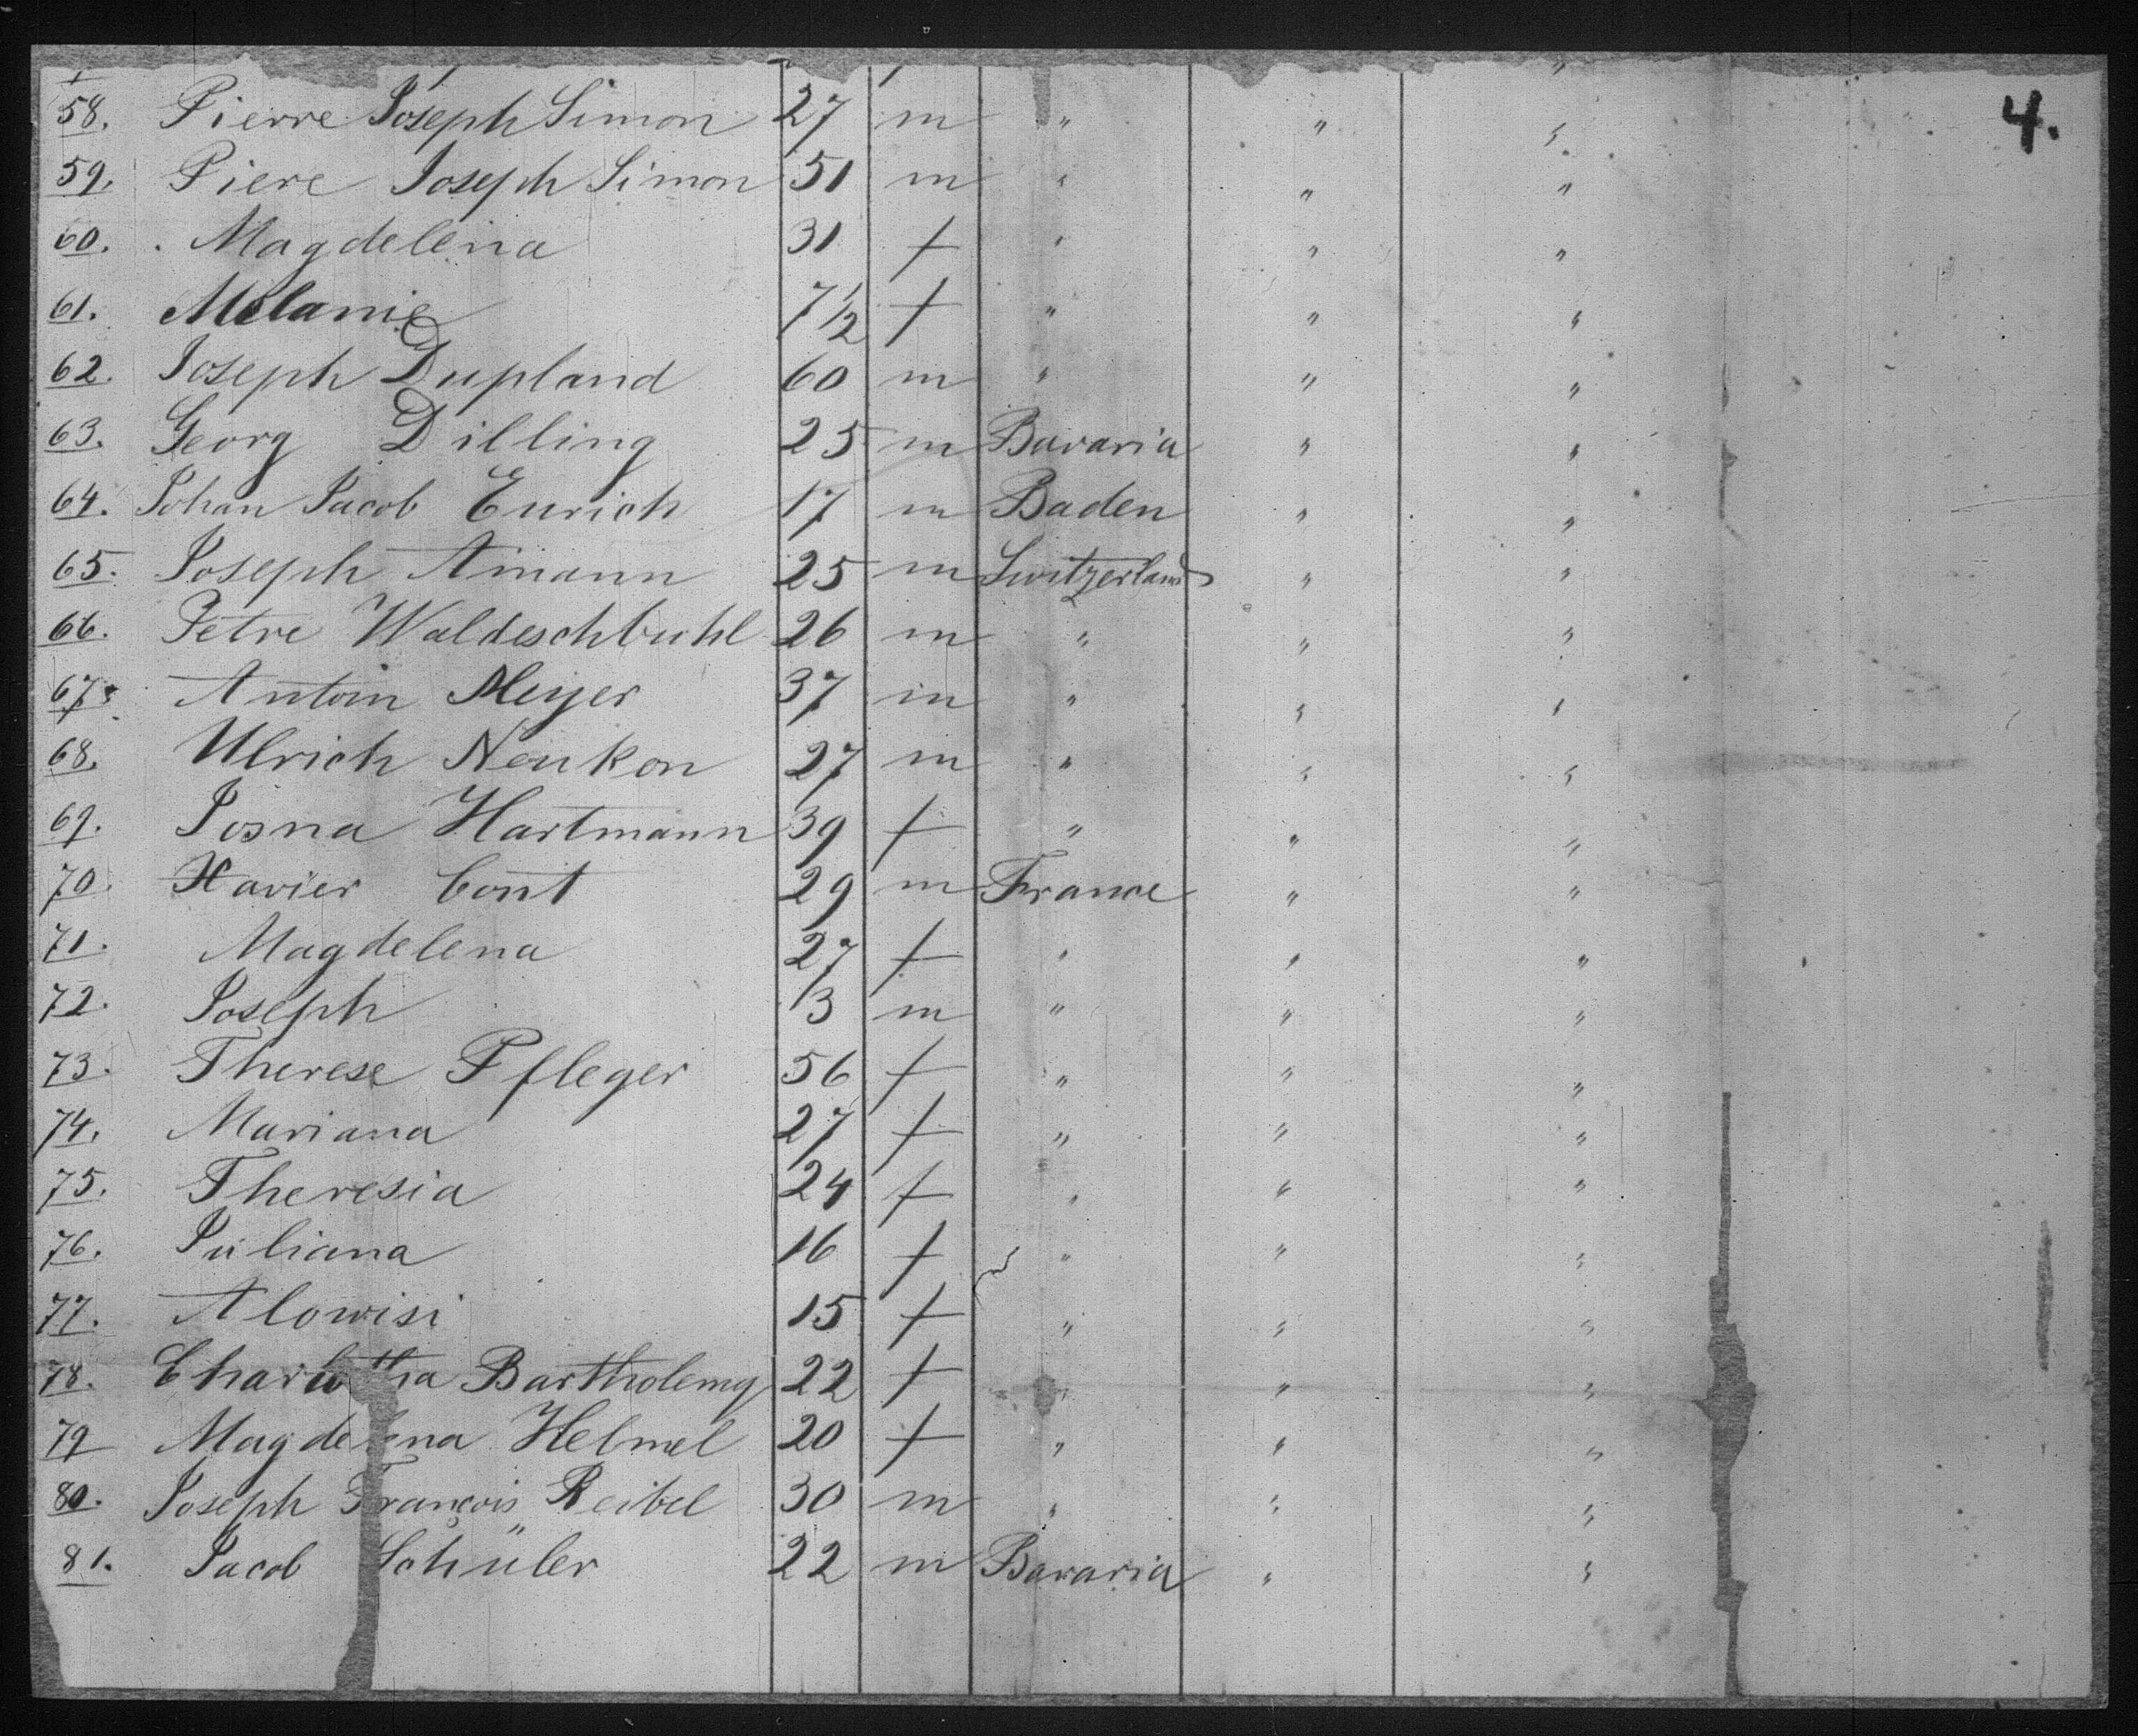 4.
58. Pierre Joseph Simon 27 m " " "
59. Piere Joseph Simon 51 m " " "
60. Magdelena 31 f " " "
61. Melanie 7 1/2 f " " "
62. Joseph Dupland 60 m " " "
63. Georg Dilling 25 m Bavaria " "
64. Johan Jacob Eurich 17 m Baden " "
65. Joseph Amann 25 m Switzerland " "
66. Petre Waldeschbuhl 26 m " " "
67. Antoin Meyer 37 m " " "
68. Ulrich Neukon 27 m " " "
69. Hartmann 39 f " " "
70. Xavier 29 m France " "
71. Magdelena 27 f " " "
72. Joseph 3 m " " "
73. Therese Pfleger 56 f " " "
74. Mariana 27 f " " "
75. Theresia 24 f " " "
76. Juliana 16 f " " "
77. Alowisi 15 f " " "
78. Bartholemy 22 f " " "
79 Magdelena Helmel 20 f " " "
80. Joseph François Reibel 30 m " " "
81. Jacob Schüler 22 m Bavaria " "